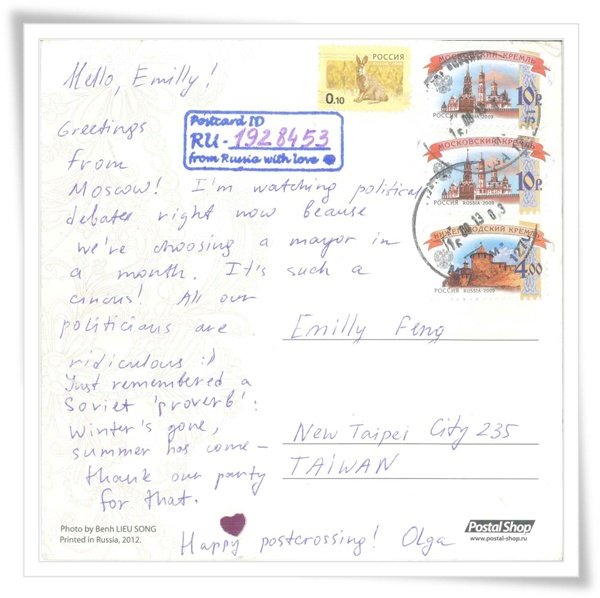 Hello, Emilly!
Greetings
from
Moscow! I'm watching political
debates right now beause
we're choosing a mayor in
a month. It's such a
circus! All our
politicians are
ridiculous :)
Just remembered a
Soviet 'proverb':
Winter's gone,
summer has come –
thank our party
for that.
Happy postcrossing! Olga
Photo by Benh LIEU SONG
Printed in Russia, 2012.
Postcard ID
RU-1928453
from Russia with love
РОССИЯ
0.10
МОСКОВСКИЙ КРЕМЛЬ
10р
РОССИЯ RUSSIA·2009
МОСКОВСКИЙ КРЕМЛЬ
10р
РОССИЯ RUSSIA·2009
НИЖЕГОРОДСКИЙ КРЕМЛЬ
4.00
РОССИЯ RUSSIA·2009
Emilly Feng
New Taipei City 235
TAIWAN
PostalShop
www.postal-shop.ru